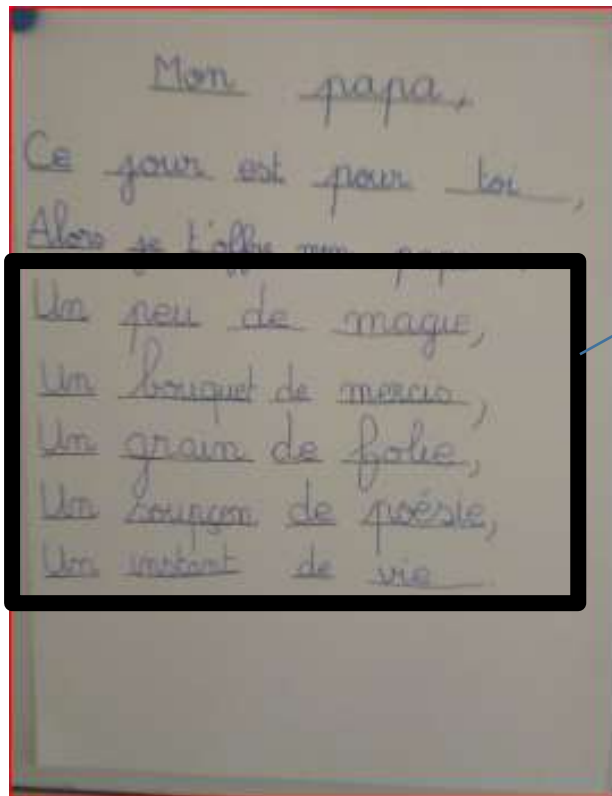 Mon papa,
Ce jour est pour toi,
Alors je t'offre mon papa
Un peu de magie,
Un bouquet de mercis,
Un grain de folie,
Un soupçon de poésie,
Un instant de vie